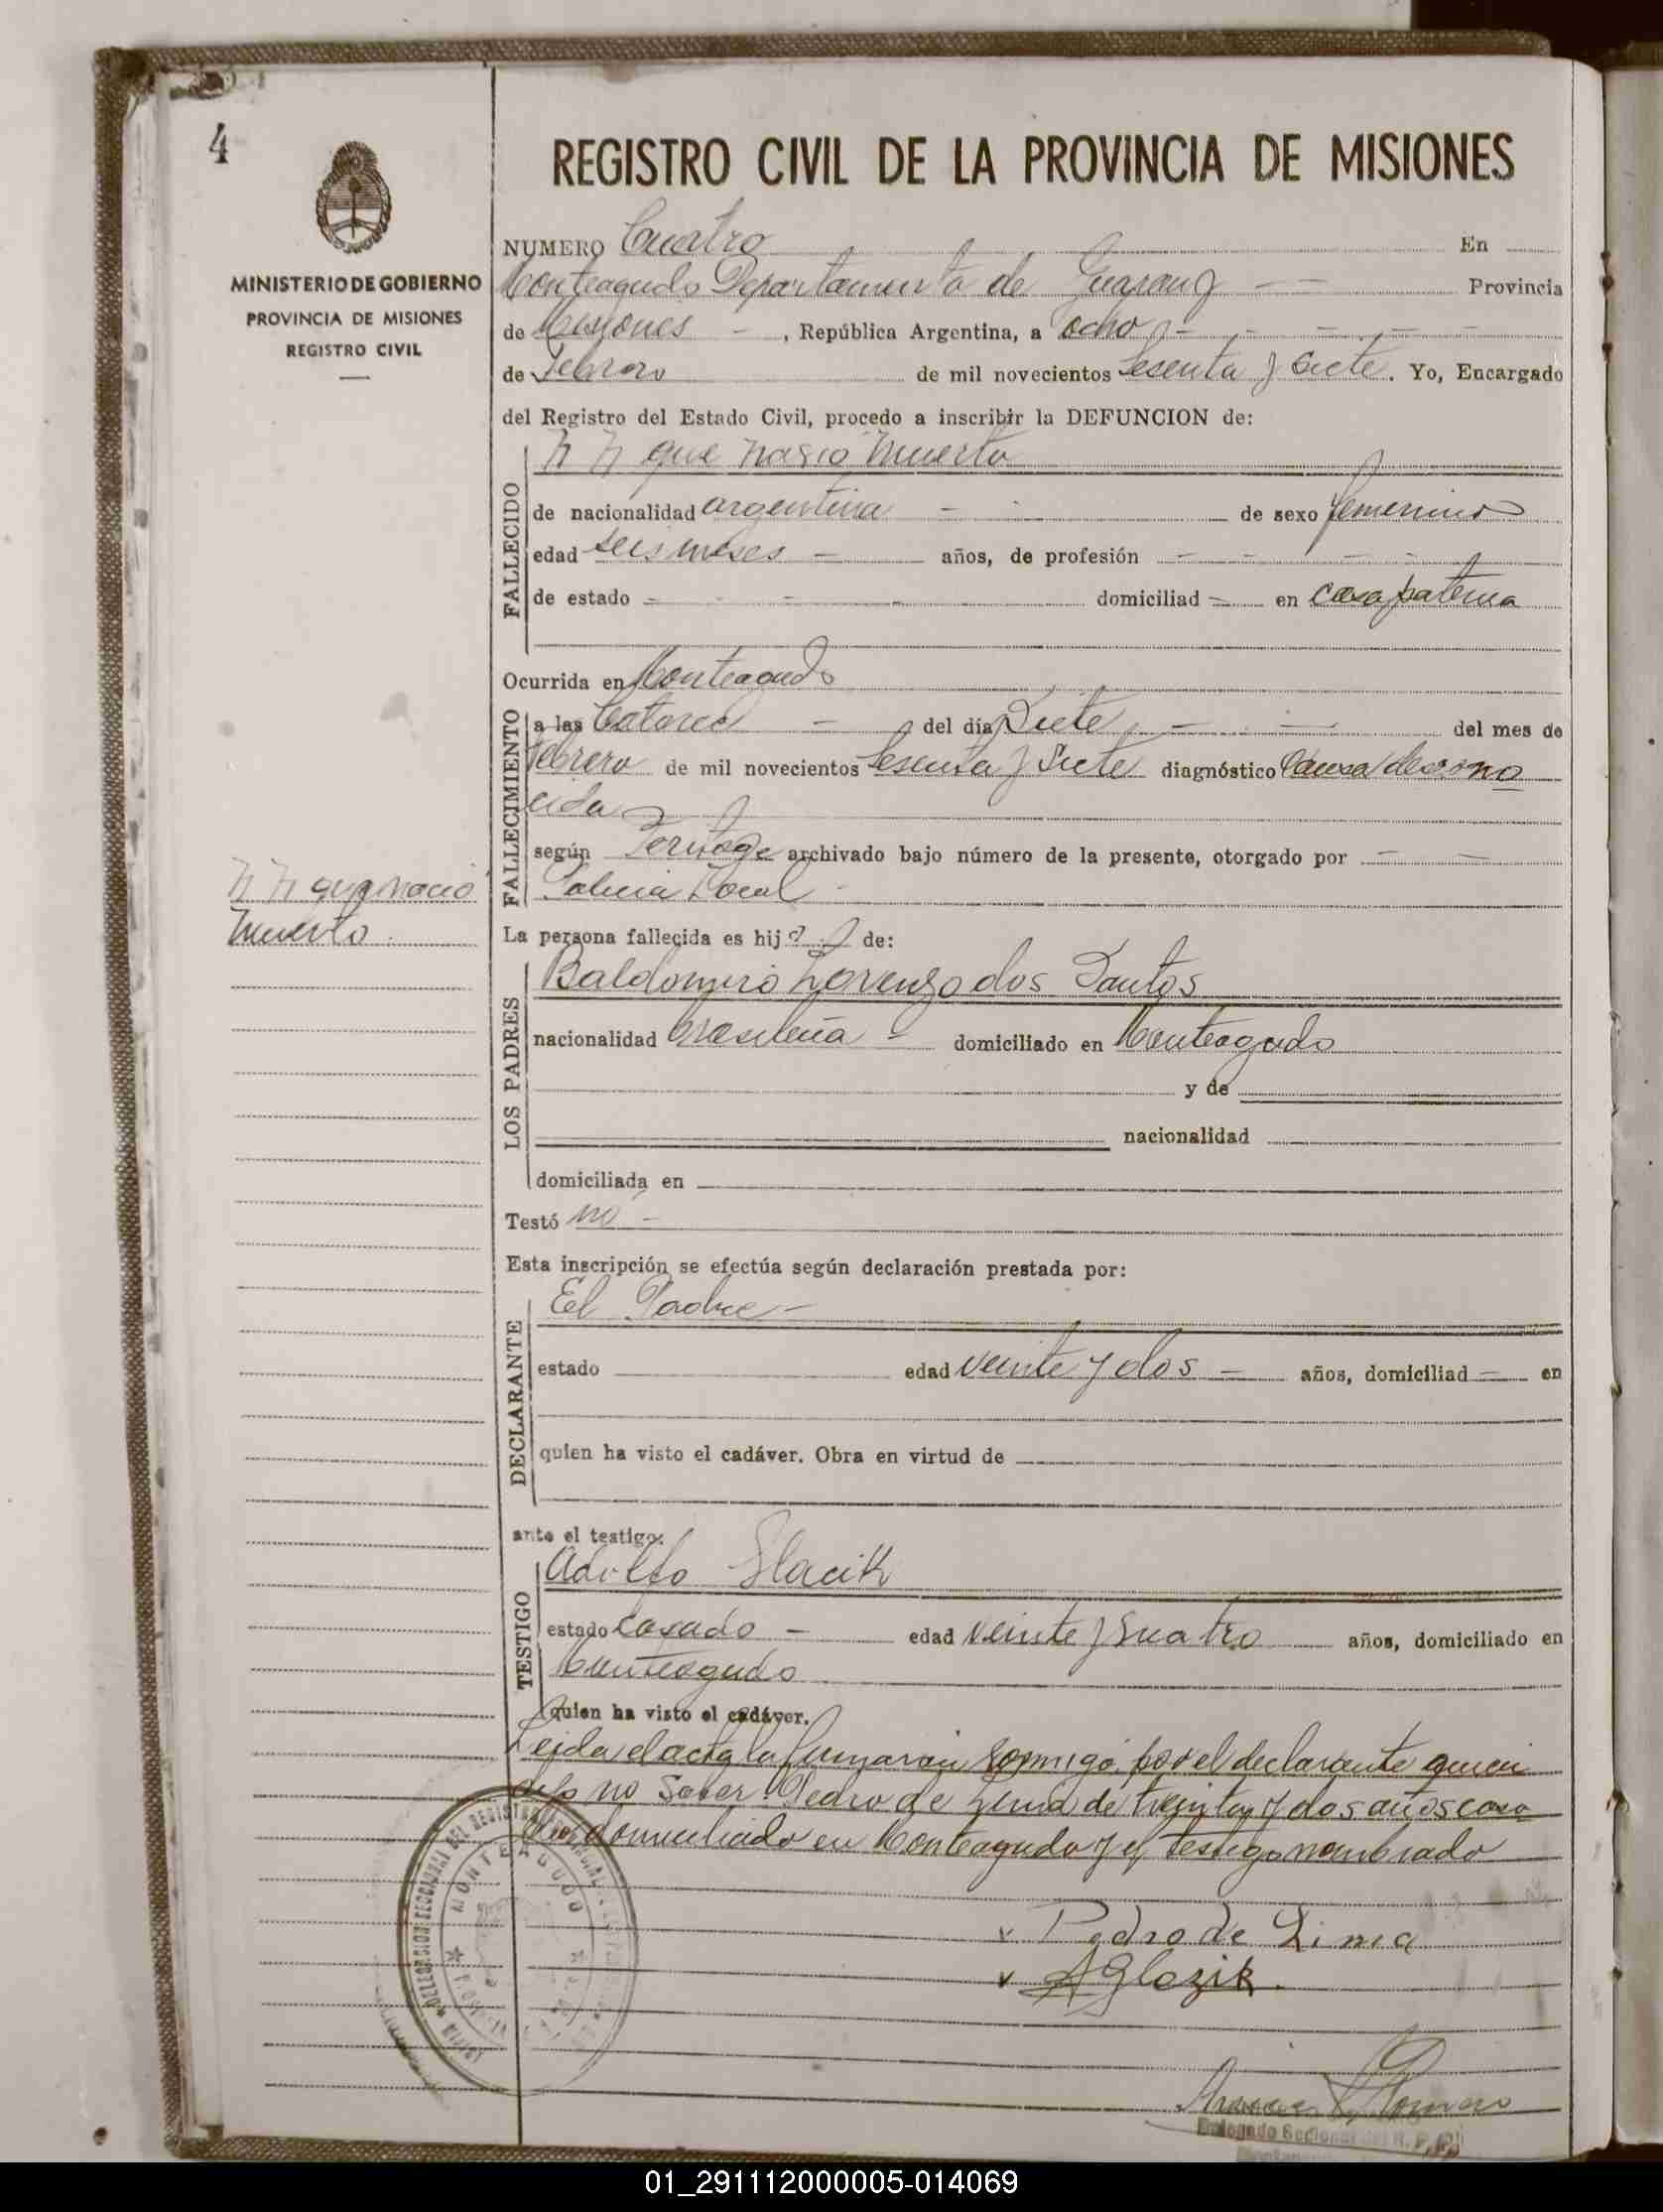 4
REGISTRO CIVIL DE LA PROVINCIA DE MISIONES
MINISTERIO DE GOBIERNO
PROVINCIA DE MISIONES
REGISTRO CIVIL
NUMERO Cuatro En
Monteagudo Departamento de Guarany Provincia
de Misiones - , República Argentina, a ocho
de Febrero de mil novecientos Sesenta y Siete. Yo, Encargado
del Registro del Estado Civil, procedo a inscribir la DEFUNCION de:
FALLECIDO
N N que nasio muerto
de nacionalidad argentina - de sexo femenino
edad seis meses - años, de profesión - - - -
de estado - - - domiciliad - en casa paterna
Ocurrida en Monteagudo
FALLECIMIENTO
a las Catorce - del día Siete - - del mes de
Febrero de mil novecientos Sesenta y Siete diagnóstico Causa descono
cida
según archivado bajo número de la presente, otorgado por - -
Policia Local -
N N que nacio
muerto
La persona fallecida es hij de:
LOS PADRES
Baldomiro Lorenzo dos Santos
nacionalidad brasileña - domiciliado en Monteagudo
y de
nacionalidad
domiciliada en
Testó no -
Esta inscripción se efectúa según declaración prestada por:
DECLARANTE
El Padre -
estado edad veinte y dos - años, domiciliad - en
quien ha visto el cadáver. Obra en virtud de
ante el testigo:
TESTIGO
Adolfo Glacik
estado Casado - edad veinte y Cuatro años, domiciliado en
Monteagudo
quien ha visto el cadáver.
Leida el acta la firmaran conmigo por el declarante quien
dijo no Saber. Pedro de Lima de treinta y dos años casa
do domiciliado en Monteagudo y el testigo nombrado
Pedro de Lima
A Glozik.
DELEGACION SECCIONAL DEL REGISTRO
MONTEAGUDO
Romero
Delegado Seccional del R. P. (P)
01_291112000005-014069